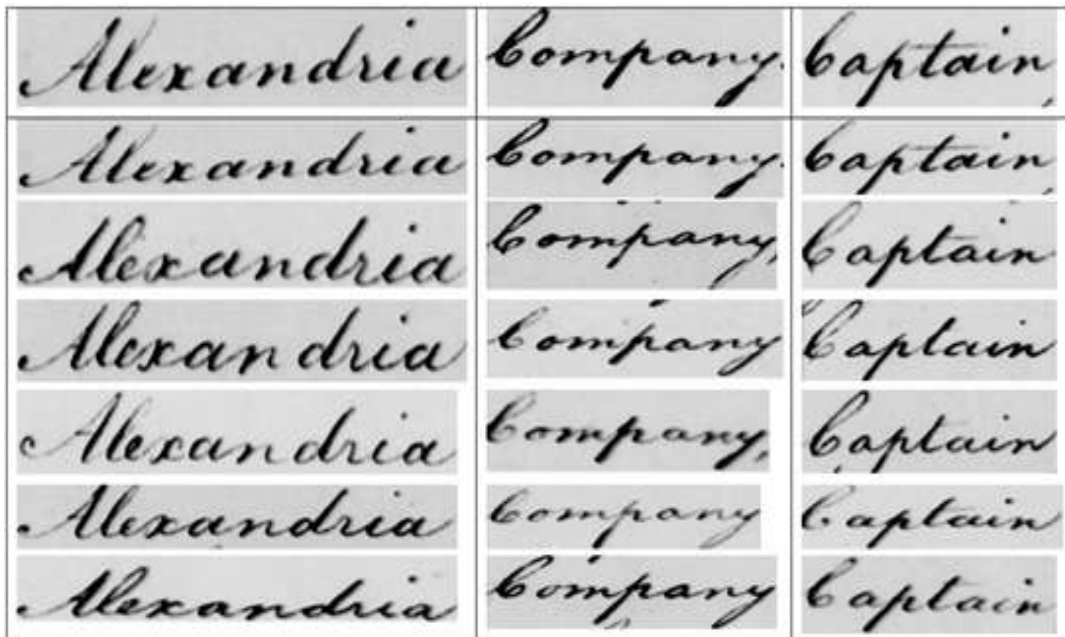 Alexandria Company. Captain,
Alexandria Company. Captain,
Alexandria Company, Captain
Alexandria Company Captain
Alexandria Company, Captain
Alexandria Company Captain
Alexandria Company Captain